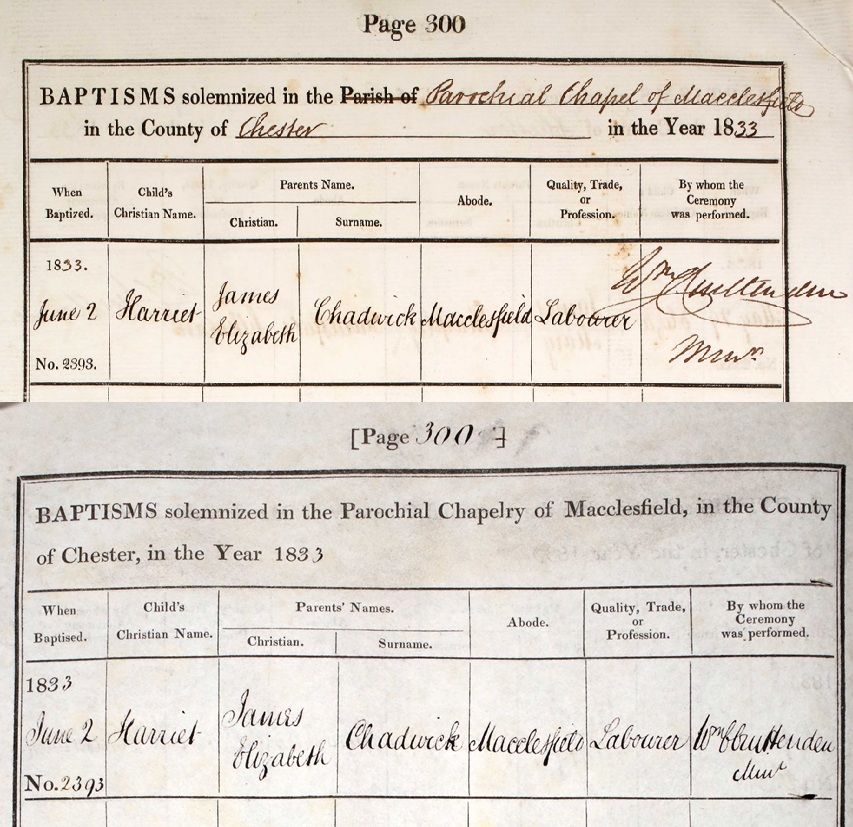 Page 300
BAPTISMS solemnized in the Parish of Parochial Chapel of Macclesfield
in the County of Chester in the Year 1833
When Baptized.
Child's Christian Name.
Parents Name.
Christian.
Surname.
Abode.
Quality, Trade, or Profession.
By whom the Ceremony was performed.
1833.
June 2
No. 2393.
Harriet
James
Elizabeth
Chadwick
Macclesfield
Labourer
Wm Cruttenden
Minr
[Page 300]
BAPTISMS solemnized in the Parochial Chapelry of Macclesfield, in the County
of Chester, in the Year 1833
When Baptised.
Child's Christian Name.
Parents' Names.
Christian.
Surname.
Abode.
Quality, Trade, or Profession.
By whom the Ceremony was performed.
1833
June 2
No. 2393
Harriet
James
Elizabeth
Chadwick
Macclesfield
Labourer
Wm C Cruttenden
Minr